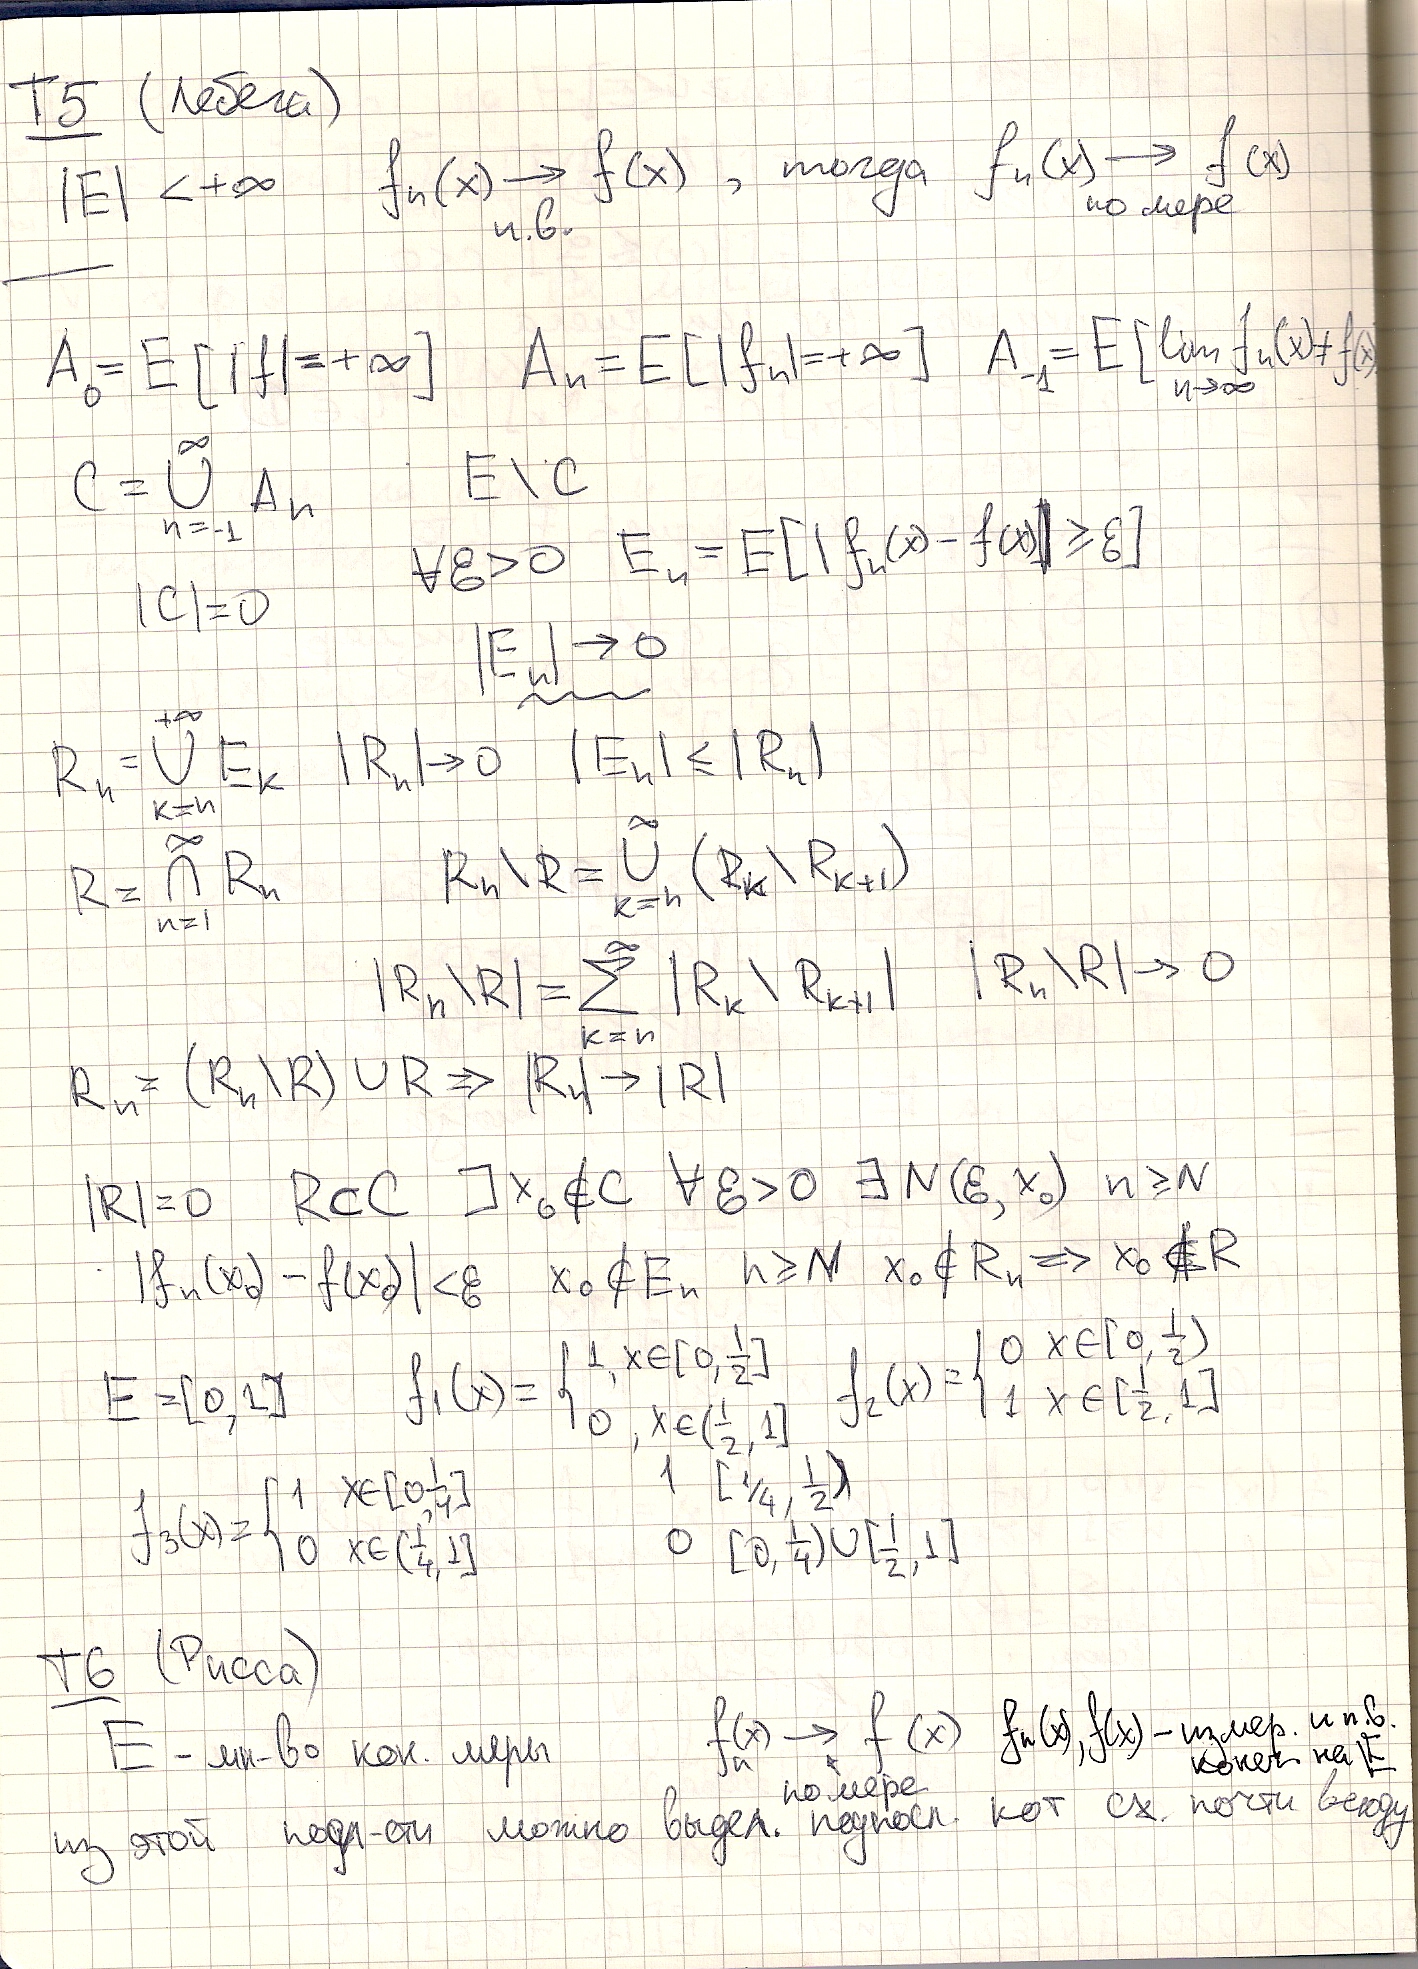 T5 (Лебега)
|E| < +∞   fₙ(x) → f(x) , тогда fₙ(x) → f(x)
п.в.   по мере
A₀ = E[|f| = +∞]   Aₙ = E[|fₙ| = +∞]   A₋₁ = E[lim fₙ(x) ≠ f(x)
n→∞
∞
C = ∪ Aₙ   E \ C
n=-1
∀ε>0   Eₙ = E[|fₙ(x) - f(x)| ≥ ε]
|C| = 0
|Eₙ| → 0
+∞
Rₙ = ∪ Eₖ   |Rₙ| → 0   |Eₙ| ≤ |Rₙ|
k=n
∞   ∞
R = ∩ Rₙ   Rₙ \ R = ∪ (Rₖ \ Rₖ₊₁)
n=1   k=n
∞
|Rₙ \ R| = ∑ |Rₖ \ Rₖ₊₁|   |Rₙ \ R| → 0
k=n
Rₙ = (Rₙ \ R) ∪ R ⇒ |Rₙ| → |R|
|R| = 0   R ⊂ C   ] x₀ ∉ C   ∀ε>0   ∃ N(ε, x₀)   n ≥ N
|fₙ(x₀) - f(x₀)| < ε   x₀ ∉ Eₙ   n ≥ N   x₀ ∉ Rₙ ⇒ x₀ ∉ R
E = [0,1]   f₁(x) = { 1, x∈[0, 1/2]   f₂(x) = { 0 x∈[0, 1/2)
0, x∈(1/2, 1]   1 x∈[1/2, 1]
f₃(x) = { 1 x∈[0, 1/4]   1 [1/4, 1/2)
0 x∈(1/4, 1]   0 [0, 1/4) ∪ [1/2, 1]
T6 (Рисса)
E - мн-во кон. меры   fₙ(x) → f(x)   fₙ(x), f(x) - измер. и п.в.
по мере   конеч на E
из этой посл-сти можно выдел. подпосл. кот сх. почти всюду